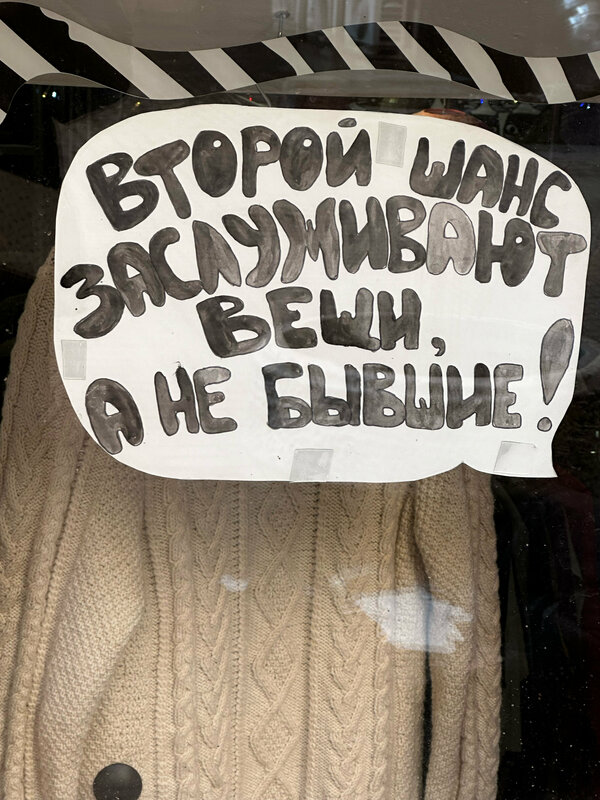 ВТОРОЙ ШАНС
ЗАСЛУЖИВАЮТ
ВЕЩИ,
А НЕ БЫВШИЕ!